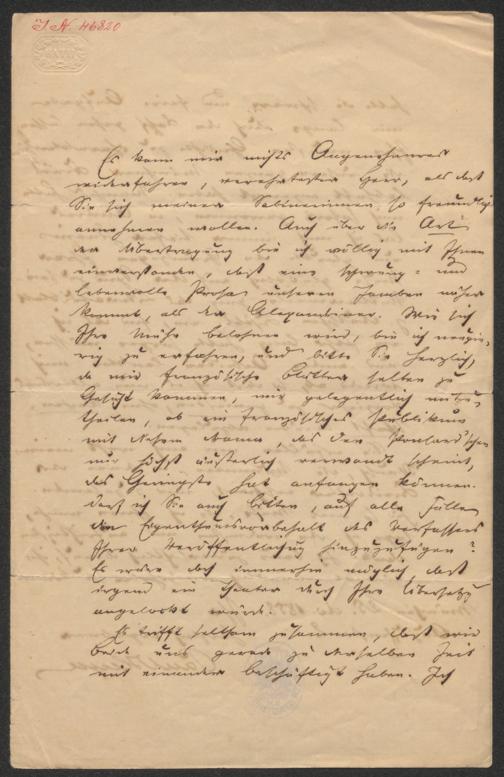 J. N. 46820
Es kann mir nichts Angenehmeres
widerfahren, verehrtester Herr, als daß
Sie sich meiner Sabinerinnen so freundlich
annehmen wollen. Auch über die Art
der Übertragung bin ich völlig mit Ihnen
einverstanden, daß eine schwung- und
lebensvolle Prosa unseren Jamben näher
kommt, als der Alexandriner. Wie sich
Ihre Mühe belohnen wird, bin ich neugie-
rig zu erfahren, und bitte Sie herzlich,
da mir französische Blätter selten zu
Gesicht kommen, mir gelegentlich mitzu-
theilen, ob ein französisches Publikum
mit diesem Drama, das den Ponsard'schen
nur höchst äußerlich verwandt scheint,
das Geringste hat anfangen können.
Darf ich Sie auch bitten, auf alle Fälle
den Eigenthumsvorbehalt des Verfassers
Ihrer Veröffentlichung hinzuzufügen?
Es wäre doch immerhin möglich, daß
irgend ein Theater durch Ihre Übersetzg
angelockt würde.
Es trifft seltsam zusammen, daß wir
beide uns gerade zu derselben Zeit
mit einander beschäftigt haben. Ich